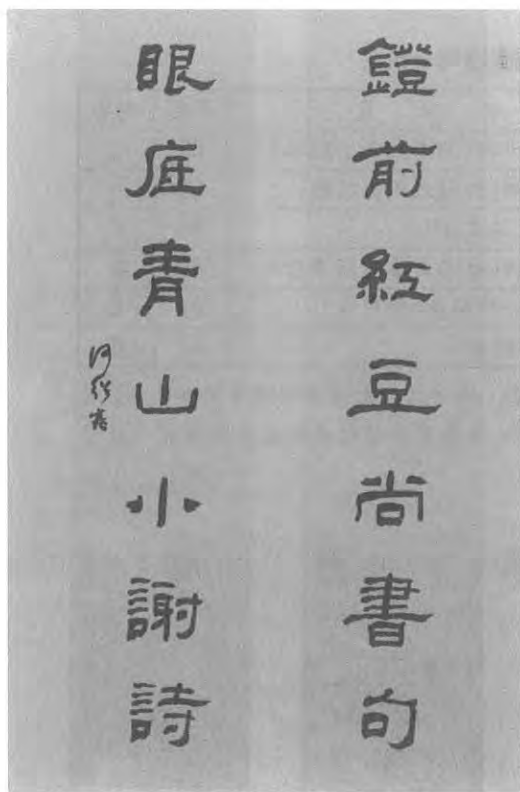 鐙前紅豆尚書句
眼底青山小謝詩
何紹基